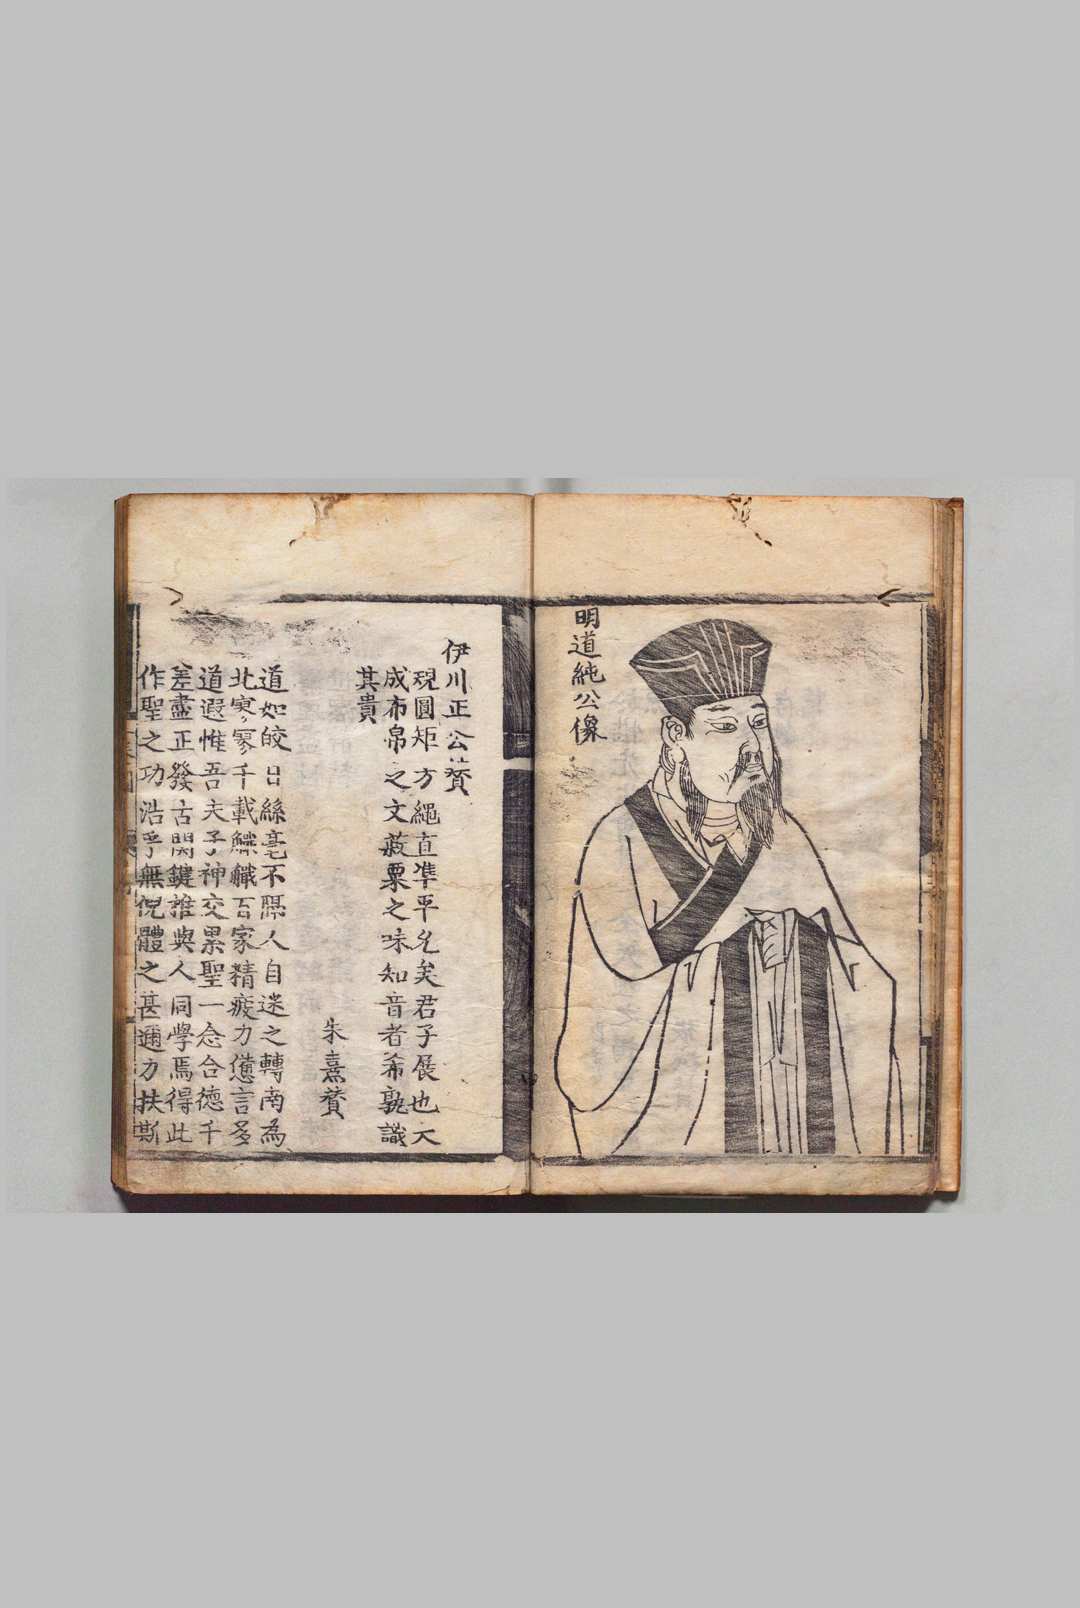 明道純公像
伊川正公賛
規圓矩方繩直準平允矣君子展也大
成布帛之文菽粟之味知音者希孰識
其貴
朱熹賛
道如皎日絲毫不隔人自迷之轉南為
北寥〻千載百家精疲力憊言多
道遐惟吾夫子神交累聖一念合德千
差盡正發古関鍵推與人同學焉得此
作聖之功浩乎無倪體之甚邇力扶斯